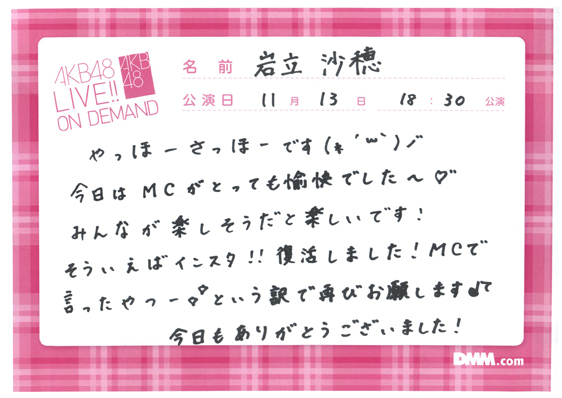 AKB48
LIVE!!
ON DEMAND
AKB
48
名前 岩立 沙穂
公演日 11月 13日 18:30 公演
やっほーさっほーです(*´ω`)ノ
今日はMCがとっても愉快でした〜♡
みんなが楽しそうだと楽しいです!
そういえばインスタ!!復活しました!MCで
言ったやつー♡という訳で再びお願します♪て
今日もありがとうございました!
DMM.com